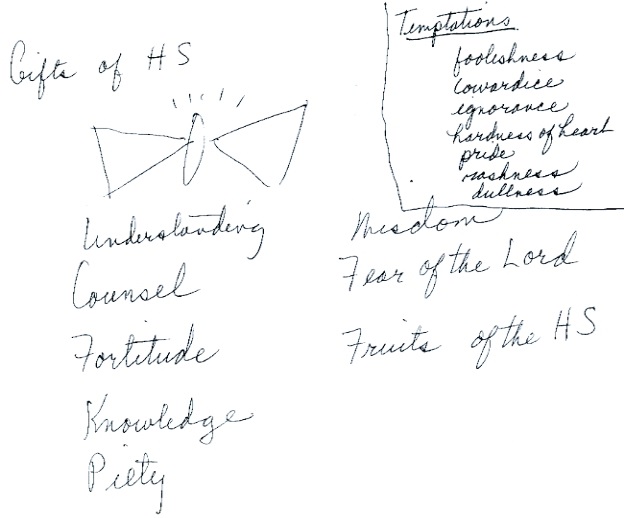 Gifts of HS
Temptations
fooleshness
cowardice
ignorance
hardness of heart
pride
rashness
dullness
Understanding
Counsel
Fortitude
Knowledge
Piety
Wisdom
Fear of the Lord
Fruits of the HS